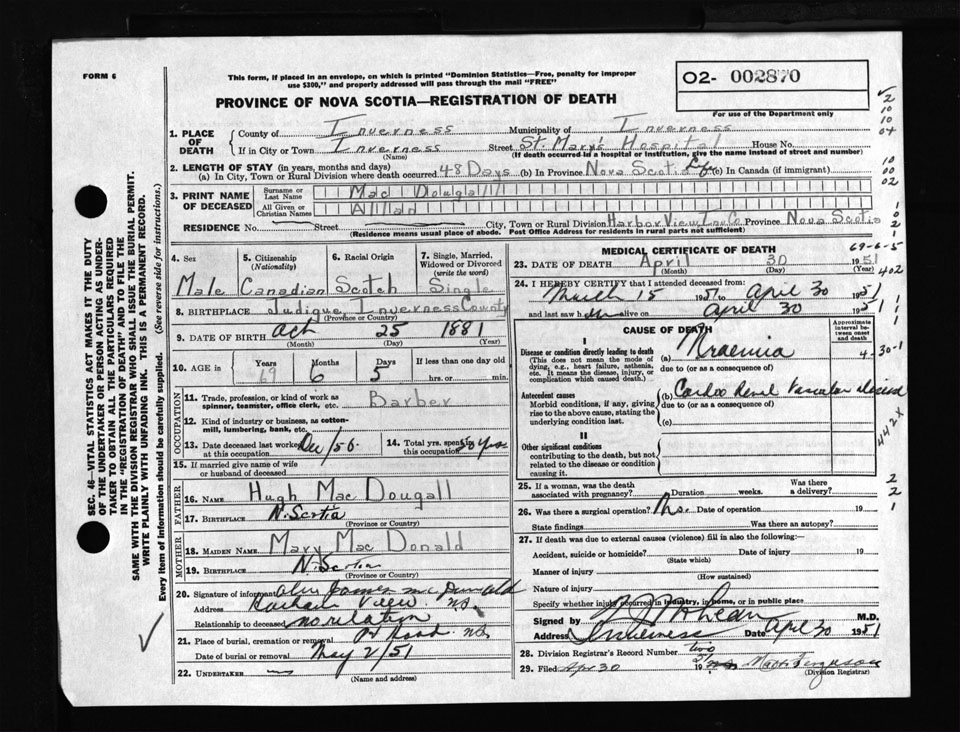 FORM 6
This form, if placed in an envelope, on which is printed "Dominion Statistics—Free, penalty for improper
use $300," and properly addressed will pass through the mail "FREE"
O2- 002870
For use of the Department only
PROVINCE OF NOVA SCOTIA—REGISTRATION OF DEATH
1. PLACE OF DEATH
County of Inverness Municipality of Inverness
If in City or Town Inverness Street St. Marys Hospital House No.
(Name) (If death occurred in a hospital or institution, give the name instead of street and number)
2. LENGTH OF STAY (in years, months and days)
(a) In City, Town or Rural Division where death occurred 48 Days (b) In Province Nova Scotia (c) In Canada (if immigrant)
3. PRINT NAME OF DECEASED
Surname or Last Name Mac Dougall
All Given or Christian Names Allan
RESIDENCE No. Street City, Town or Rural Division Harbor View Inv Co Province Nova Scotia
(Residence means usual place of abode. Post Office Address for residents in rural parts not sufficient)
4. Sex Male
5. Citizenship (Nationality) Canadian
6. Racial Origin Scotch
7. Single, Married, Widowed or Divorced (write the word) Single
8. BIRTHPLACE Judique Inverness County
(Province or Country)
9. DATE OF BIRTH Oct 25 1881
(Month) (Day) (Year)
10. AGE in Years 69 Months 6 Days 5 If less than one day old hrs. or min.
OCCUPATION
11. Trade, profession, or kind of work as spinner, teamster, office clerk, etc. Barber
12. Kind of industry or business, as cotton-mill, lumbering, bank, etc.
13. Date deceased last worked at this occupation Dec/50
14. Total yrs. spent in this occupation 50 yrs
15. If married give name of wife or husband of deceased
FATHER
16. Name Hugh Mac Dougall
17. Birthplace N. Scotia
(Province or Country)
MOTHER
18. MAIDEN NAME Mary Mac Donald
19. BIRTHPLACE N. Scotia
(Province or Country)
20. Signature of informant James McDonald
Address View NS
Relationship to deceased no relation
21. Place of burial, cremation or removal Pt Hood NS
Date of burial or removal May 2/51
22. UNDERTAKER
(Name and address)
MEDICAL CERTIFICATE OF DEATH
69-6-5
23. DATE OF DEATH April 30 1951
(Month) (Day) (Year)
24. I HEREBY CERTIFY that I attended deceased from:
March 15 1951 to April 30 1951
and last saw him alive on April 30 1951
CAUSE OF DEATH
Approximate interval between onset and death
I
Disease or condition directly leading to death
(This does not mean the mode of dying, e.g., heart failure, asthenia, etc. It means the disease, injury, or complication which caused death.)
(a) Uraemia 4-30-1
due to (or as a consequence of)
Antecedent causes
Morbid conditions, if any, giving rise to the above cause, stating the underlying condition last.
(b) Cardio Renal Vascular disease
due to (or as a consequence of)
(c)
442X
II
Other significant conditions
contributing to the death, but not related to the disease or condition causing it.
25. If a woman, was the death associated with pregnancy? Duration weeks. Was there a delivery?
26. Was there a surgical operation? No Date of operation 19
State findings Was there an autopsy?
27. If death was due to external causes (violence) fill in also the following:—
Accident, suicide or homicide? Date of injury 19
(State which)
Manner of injury
(How sustained)
Nature of injury
Specify whether injury occurred in industry, in home, or in public place
Signed by M.D.
Address Inverness Date April 30 1951
28. Division Registrar's Record Number two
29. Filed Apr 30 19
(Division Registrar)
SEC. 46—VITAL STATISTICS ACT MAKES IT THE DUTY
OF THE UNDERTAKER OR PERSON ACTING AS UNDER-
TAKER TO OBTAIN ALL THE PARTICULARS REQUIRED
IN THE "REGISTRATION OF DEATH" AND TO FILE THE
SAME WITH THE DIVISION REGISTRAR WHO SHALL ISSUE THE BURIAL PERMIT.
WRITE PLAINLY WITH UNFADING INK. THIS IS A PERMANENT RECORD.
Every item of information should be carefully supplied. (See reverse side for instructions.)